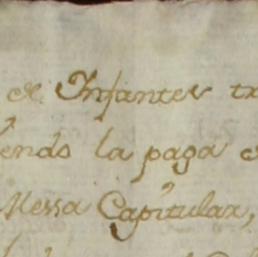 de Infantes
endo la paga
Messa Capitular,